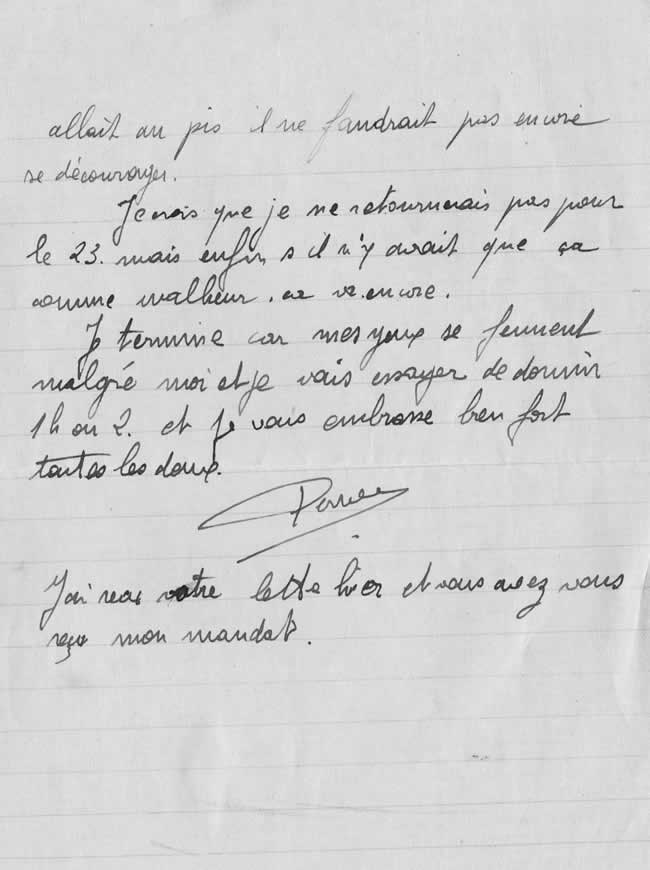 allait au pis il ne faudrait pas encore
se décourager.
Je crois que je ne retournerais pas pour
le 23. mais enfin s il n'y avait que ça
comme malheur. ca va encore.
Je termine car mes yeux se ferment
malgré moi et je vais essayer de dormir
1h ou 2. et je vous embrasse bien fort
toutes les deux.
J'ai reçu votre lettre hier et vous avez vous
reçu mon mandat.